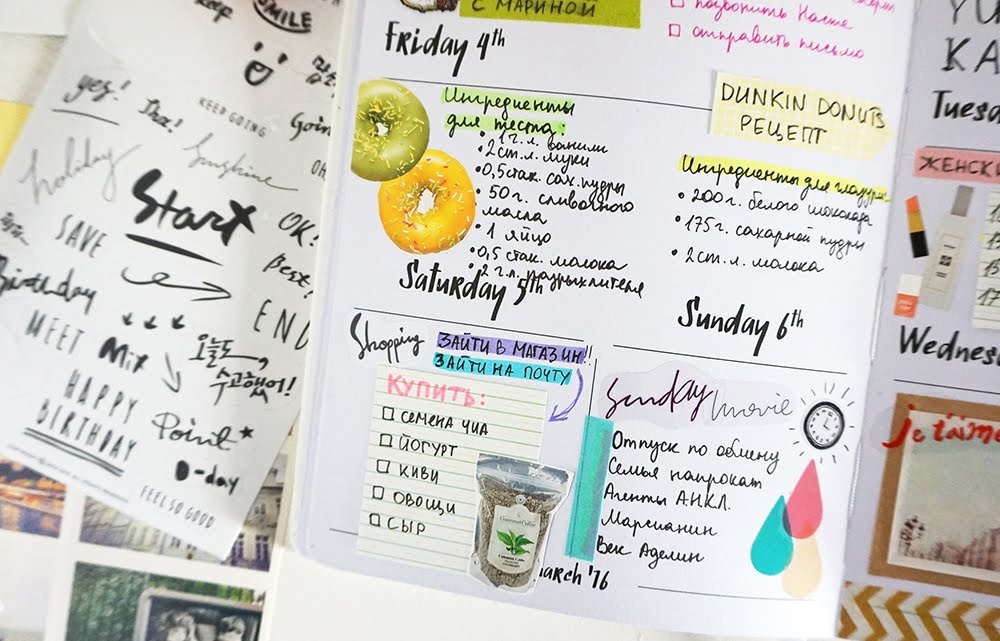 SMILE
yes!
KEEP GOING
Sunshine
holiday
Start
OK!
SAVE
Best!
Birthday
END
MEET
Mix
오늘도
수고했어!
HAPPY
BIRTHDAY
Point
D-day
FEEL SO GOOD
С МАРИНОЙ
позвонить Насте
отправить письмо
Friday 4th
Ингредиенты
для теста:
1 ч.л. ванили
2 ст.л. муки
0,5 стак. сах. пудры
50 г. сливочного
масла
1 яйцо
0,5 стак. молока
2 ч.л. разрыхлителя
DUNKIN DONUTS
РЕЦЕПТ
Ингредиенты для глазури:
200 г. белого шоколада
175 г. сахарной пудры
2 ст.л. молока
Saturday 5th
Sunday 6th
Shopping
ЗАЙТИ В МАГАЗИН!!
ЗАЙТИ НА ПОЧТУ
КУПИТЬ:
СЕМЕНА ЧИА
ЙОГУРТ
КИВИ
ОВОЩИ
СЫР
Sunday movie
Отпуск по обмену
Семья напрокат
Агенты А.Н.К.Л.
Марсианин
Век Аделин
March '16
Tuesda
ЖЕНСКИ
Wednesd
je t'aime